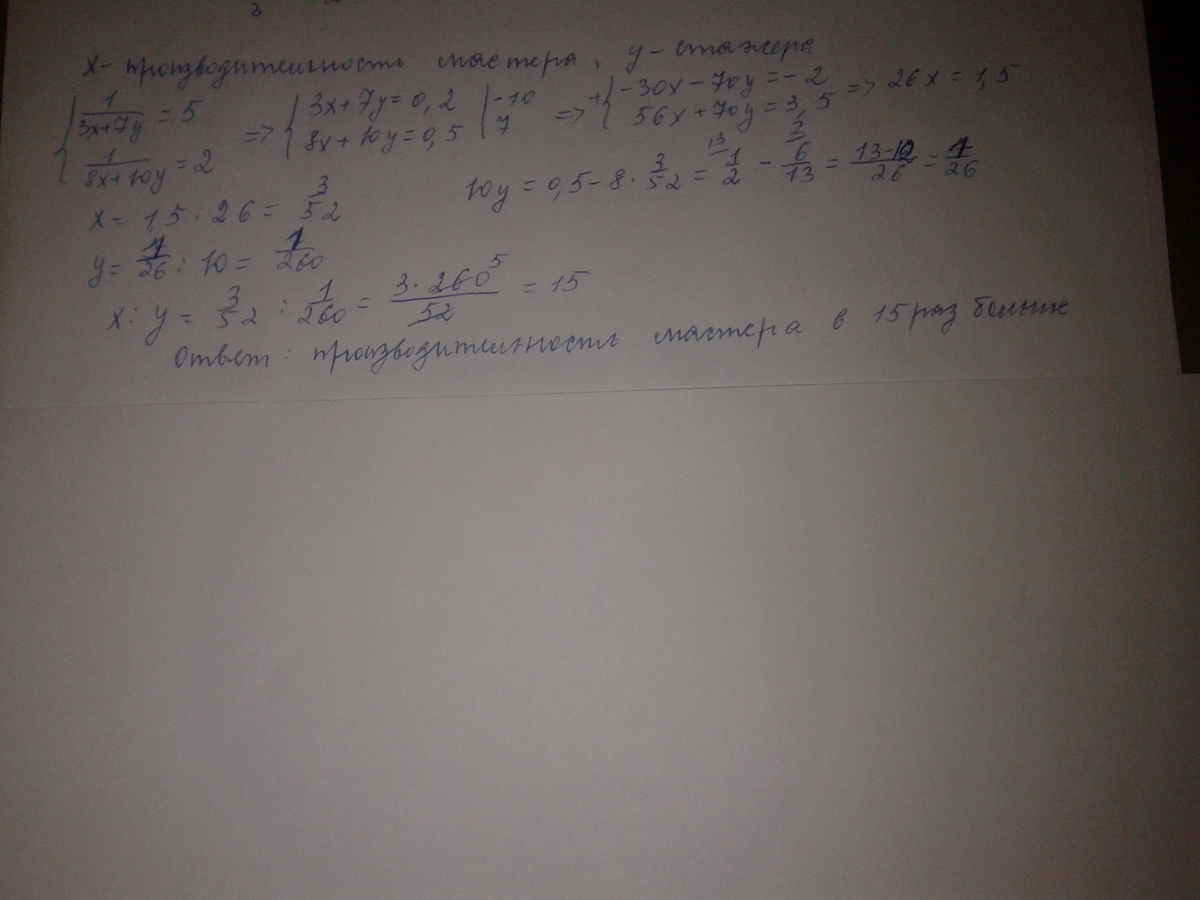 3
x - производительность мастера, y - стажера
{ 1/(3x+7y) = 5 => { 3x+7y=0,2 | -10 => + { -30x-70y=-2 => 26x=1,5
{ 1/(8x+10y) = 2 { 8x+10y=0,5 | 7 { 56x+70y=3,5
x = 1,5 : 26 = 3/52 10y = 0,5 - 8 · 3/52 = 13 1/2 - 2 6/13 = (13-12)/26 = 1/26
y = 1/26 : 10 = 1/260
x : y = 3/52 : 1/260 = (3·260 5)/52 = 15
Ответ: производительность мастера в 15 раз больше